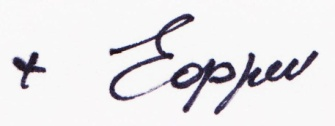 + Eopper